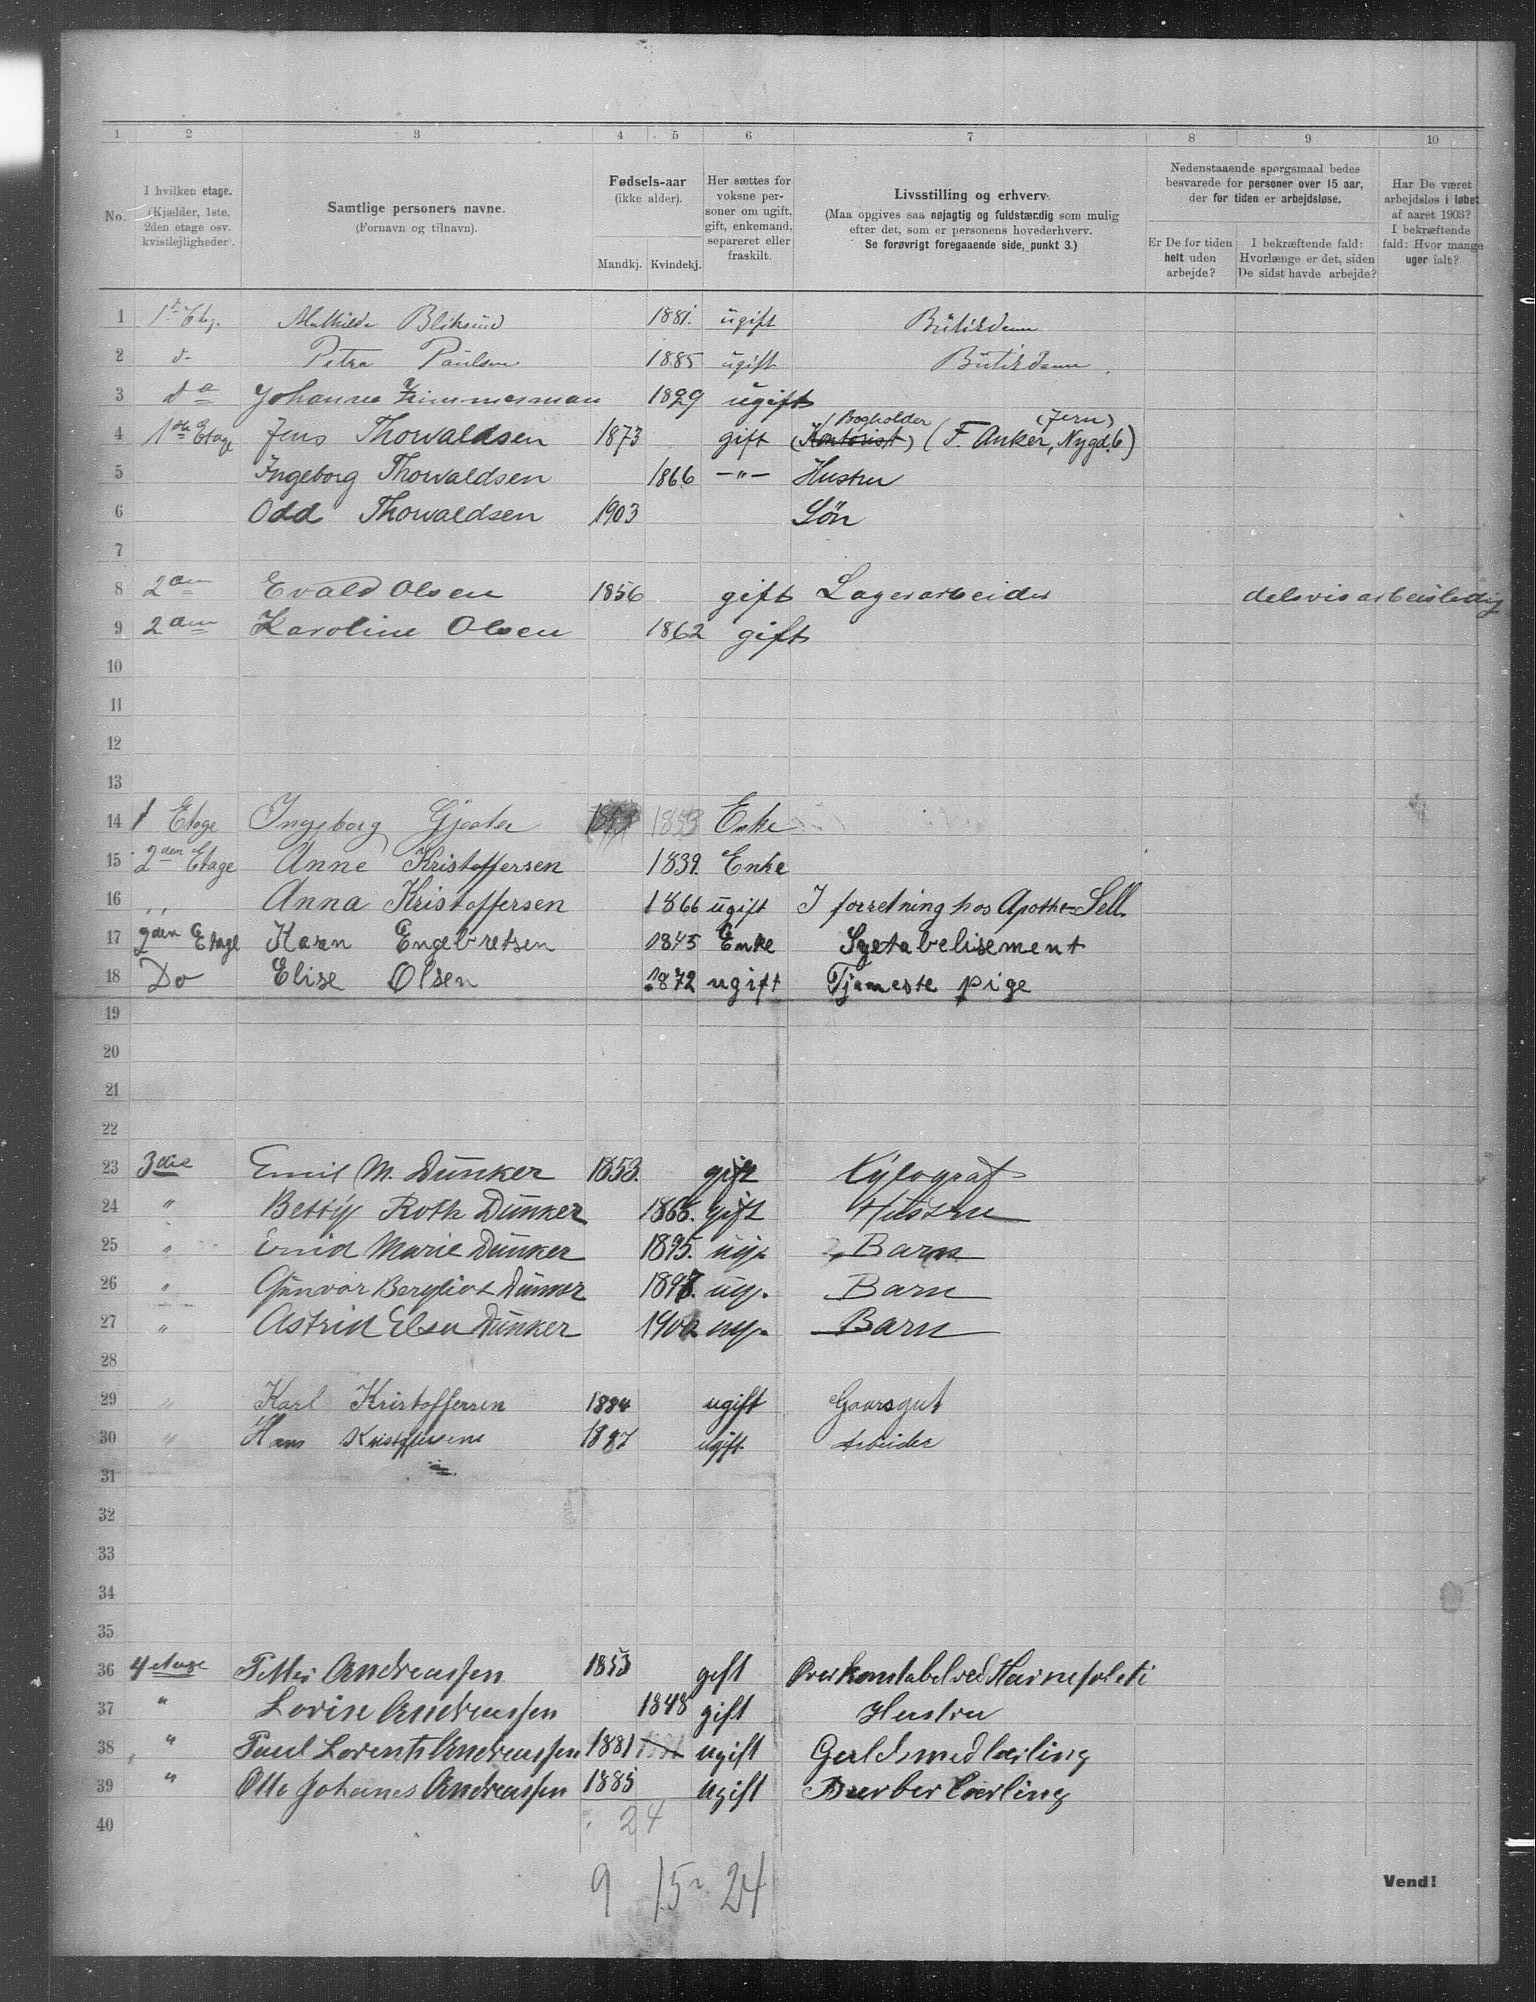 1 2 3 4 5 6 7 8 9 10
No. I hvilken etage. (Kjælder, 1ste, 2den etage osv. kvistlejligheder). Samtlige personers navne. (Fornavn og tilnavn). Fødsels-aar (ikke alder). Mandkj. Kvindekj. Her sættes for voksne personer om ugift, gift, enkemand, separeret eller fraskilt. Livsstilling og erhverv. (Maa opgives saa nøjagtig og fuldstændig som mulig efter det, som er personens hovederhverv. Se forøvrigt foregaaende side, punkt 3.) Nedenstaaende spørgsmaal bedes besvarede for personer over 15 aar, der for tiden er arbejdsløse. Er De for tiden helt uden arbejde? I bekræftende fald: Hvorlænge er det, siden De sidst havde arbejde? Har De været arbejdsløs i løbet af aaret 1903? I bekræftende fald: Hvor mange uger ialt?
1 1st Etg. Mathilde Bliksund 1881. ugift Butikdame
2 d- Petra Paulsen 1885 ugift Butikdame.
3 do Johanne Zimmerman 1829 ugift
4 1ste Etage Jens Thorvaldsen 1873 gift (Kontorist) Bogholder (F. Anker, Nygd. 6) (Jern)
5 Ingeborg Thorvaldsen 1866 —"— Hustru
6 Odd Thorvaldsen 1903 Søn
7
8 2den Evald Olsen 1856 gift Lagerarbeider delsvis arbeisledig
9 2den Karoline Olsen 1862 gift
10
11
12
13
14 1 Etage Ingeborg 1853 Enke
15 2den Etage Anne Kristoffersen 1839. Enke
16 ,, Anna Kristoffersen 1866 ugift I forretning hos Apothe- Sell.
17 2den Etage Karen Engebretsen 1845 Enke Syetabelisement
18 Do Elise Olsen 1872 ugift Tjeneste pige
19
20
21
22
23 3die Emil M. Dunker 1853. gift Xylograf
24 " Betty Roth Dunker 1865. gift Hustru
25 " Enid Marie Dunker 1895. ug. Barn
26 " Gunvor Bergliot Dunker 1897. ug. Barn
27 " Astrid Elsa Dunker 1900 ug. Barn
28
29 " Karl Kristoffersen 1884 ugift Gaarsgut
30 " Hans Kristoffersen 1887 ugift Arbeider
31
32
33
34
35
36 4 etage Petter Andreassen 1853 gift Overkonstabel ved Havnepoleti
37 " Lovise Andreassen 1848 gift Hustru
38 " Paul Lorents Andreassen 1881 ugift Guldsmedlærling
39 " Otto Johanes Andreassen 1885 ugift Barber Lærling
40 24
9 15 24
Vend!